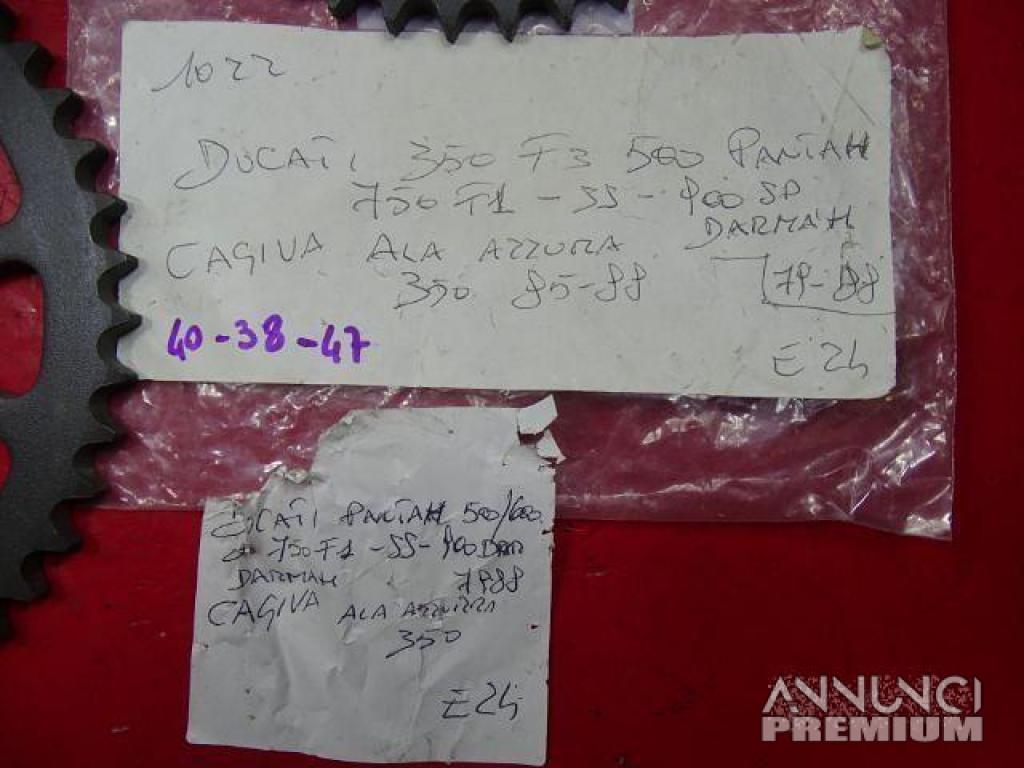 1022
DUCATI 350 F3 500 PANTAH
750 F1 - SS - 900 SP
DARMAH
CAGIVA ALA AZZURA
350 85-88
79-88
40-38-47
E 24
DUCATI PANTAH 500/600
750 F1 - SS - 900
DARMAH 7988
CAGIVA ALA AZZURRA
350
E 24
ANNUNCI
PREMIUM